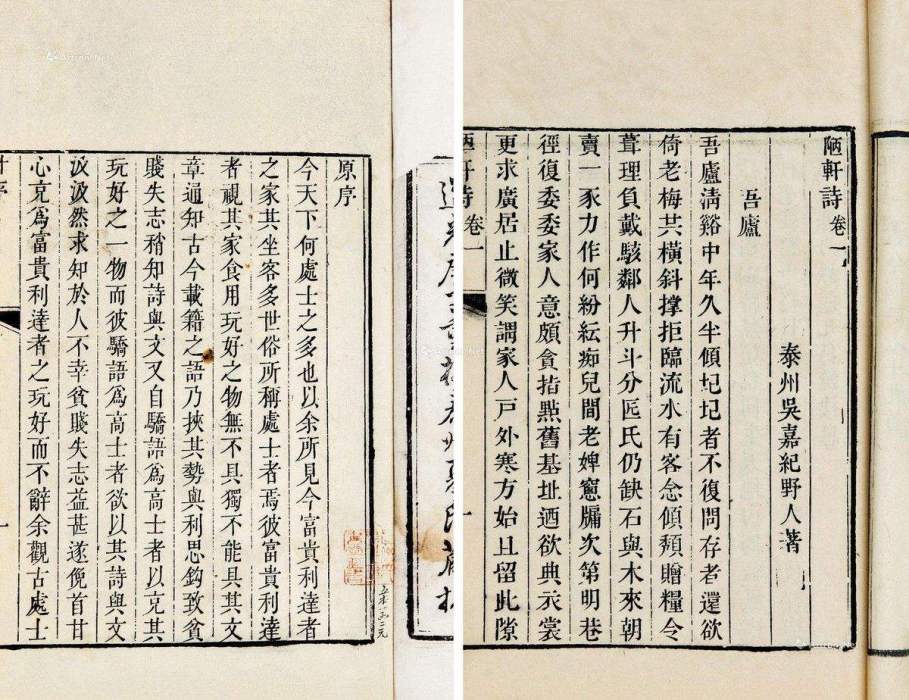 原序
今天下何處士之多也以余所見今富貴利達者
之家其坐客多世俗所稱處士者焉彼富貴利達
者視其家食用玩好之物無不具獨不能具其文
章通知古今載籍之語乃挾其勢與利思鈎致貧
賤失志稍知詩與文又自驕語爲高士者以充其
玩好之一物而彼驕語爲高士者欲以其詩與文
汲汲然求知於人不幸貧賤失志益甚遂俛首甘
心充爲富貴利達者之玩好而不辭余觀古處士
一
泰州夏氏藏板
陋軒詩 卷一
泰州吳嘉紀野人著
吾廬
吾廬淸谿中年久半傾圮圮者不復問存者還欲
倚老梅共橫斜撐拒臨流水有客念傾頽贈糧令
葺理負戴駭鄰人升斗分匠氏仍缺石與木來朝
賣一豕力作何紛紜痴兒間老婢窻牖次第明巷
徑復委委家人意頗貪指㸃舊基址迺欲典衣裳
更求廣居止微笑謂家人戸外寒方始且留此隙
陋軒詩 卷一 一